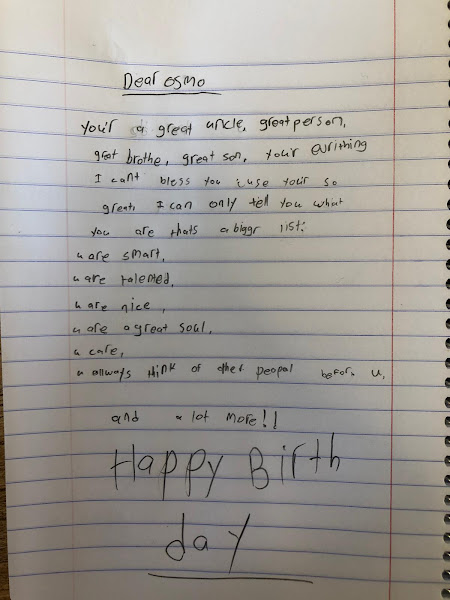 Dear osmo
your a great uncle, great person,
great brothe, great son, your eurithing
I cant bless you cuse your so
great, I can only tell you what
you are thats a biggr list:
u are smart,
u are talented,
u are nice,
u are a great soul,
u care,
u allways think of other peopal before u,
and a lot more!!
Happy Birth
day